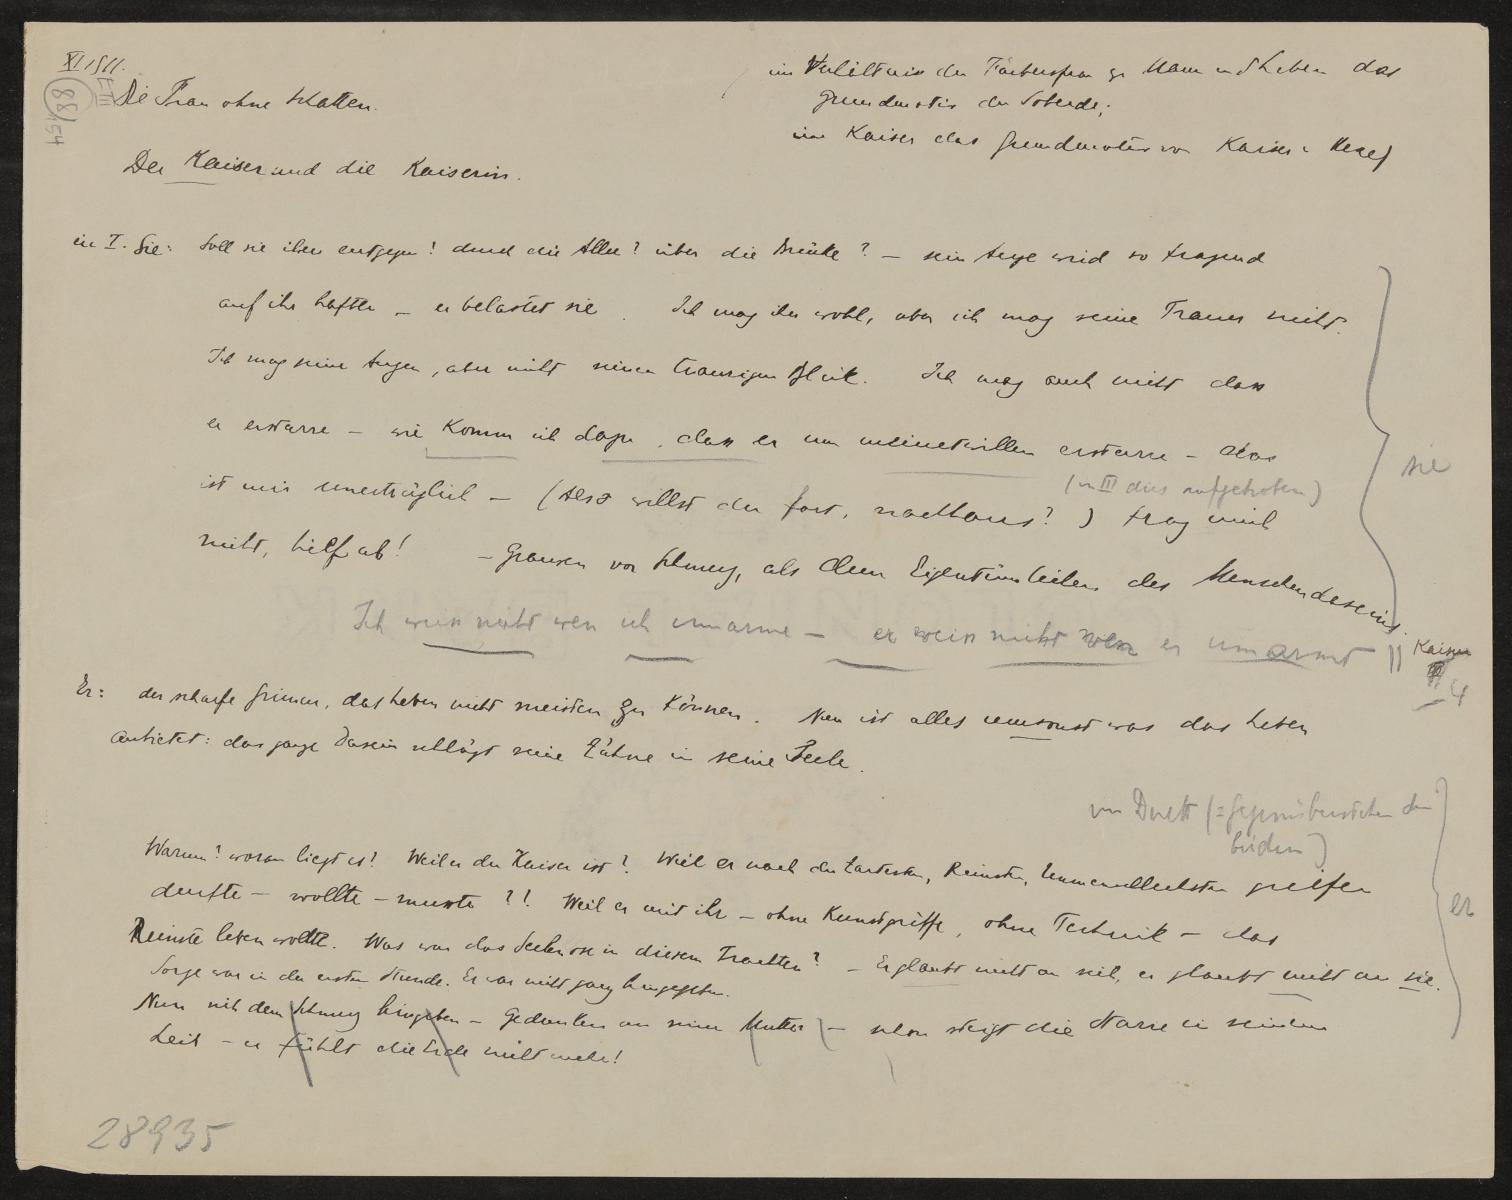 XI 1911.
E III
88/154
Die Frau ohne Schatten.
im Verhältnis der Färbersfrau zu Mann und Leben das
Grundmotiv der Sobeide;
im Kaiser das Grundmotiv von Kaiser u Hexe)
Der Kaiser und die Kaiserin.
in I. Sie: Soll sie ihm entgegen? durch die Allee? über die Brücke? – sein Auge wird so fragend
auf ihr haften – er belastet sie. Ich mag ihn wohl, aber ich mag seine Trauer nicht.
Ich mag seine Augen, aber nicht seinen traurigen Blick. Ich mag auch nicht dass
er erstarre – wie komm ich dazu, dass er um meinetwillen erstarre – das
(in III dies aufgehoben)
ist mir unerträglich – (Also willst du fort, nachhaus?) frag mich
nicht, hilf ab! – Grausen vor Schmerz, als dem Eigentümlichen des Menschendaseins.
Ich weiss nicht wen ich umarme – er weiss nicht wen er umarmt
sie
Kaiser
4
Er: der scharfe Grimm, das Leben nicht meistern zu können. Nun ist alles umsonst was das Leben
anbietet: das ganze Dasein schlägt seine Zähne in seine Seele.
Duett (= Gegenüberstehen der
beiden)
Warum? woran liegt es? Weil er der Kaiser ist? Weil er nach der Zartesten, Reinsten, greifen
durfte – wollte – musste?! Weil er mit ihr – ohne Kunstgriffe, ohne Technik – das
Reinste leben wollte. Was war das Seelenlose in diesem Trachten? – Er glaubt nicht an sich, er glaubt nicht an sie.
Sorge war in der ersten Stunde. Er war nicht ganz hingegeben.
Nun sich dem Schmerz hingeben – Gedanken an seine Mutter – schon steigt die Starre in seinem
Leib – er fühlt die Erde nicht mehr!
er
28935